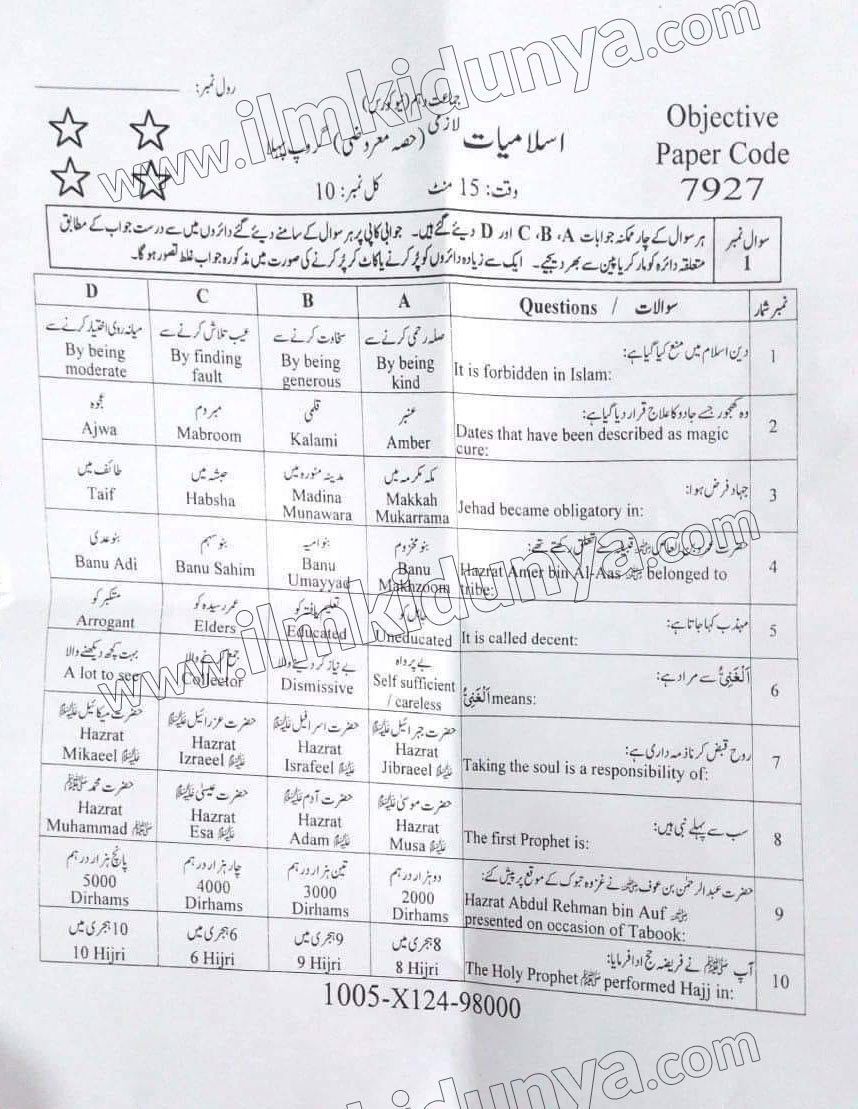 رول نمبر:
جماعت دہم (نیو کورس)
اسلامیات لازمی (حصہ معروضی) گروپ پہلا
وقت: 15 منٹ
کل نمبر: 10
Objective
Paper Code
7927
سوال نمبر 1
ہر سوال کے چار ممکنہ جوابات C ،B ،A اور D دیئے گئے ہیں۔ جوابی کاپی پر ہر سوال کے سامنے دیئے گئے دائروں میں سے درست جواب کے مطابق
متعلقہ دائرہ کو مارکر یا پین سے بھر دیجیے۔ ایک سے زیادہ دائروں کو پُر کرنے یا کاٹ کر پُر کرنے کی صورت میں مذکورہ جواب غلط تصور ہو گا۔
نمبر شمار
Questions / سوالات
A
B
C
D
1
دین اسلام میں منع کیا گیا ہے:
It is forbidden in Islam:
صلہ رحمی کرنے سے
By being
kind
سخاوت کرنے سے
By being
generous
عیب تلاش کرنے سے
By finding
fault
میانہ روی اختیار کرنے سے
By being
moderate
2
وہ کھجور جسے جادو کا علاج قرار دیا گیا ہے:
Dates that have been described as magic
cure:
عنبر
Amber
قلمی
Kalami
مبروم
Mabroom
عجوہ
Ajwa
3
جہاد فرض ہوا:
Jehad became obligatory in:
مکہ مکرمہ میں
Makkah
Mukarrama
مدینہ منورہ میں
Madina
Munawara
حبشہ میں
Habsha
طائف میں
Taif
4
حضرت عمرو بن العاص قبیلے سے تعلق رکھتے تھے:
Hazrat Amer bin Al-Aas belonged to
tribe:
بنو مخزوم
Banu
Makhzoom
بنو امیہ
Banu
Umayyad
بنو سہم
Banu Sahim
بنو عدی
Banu Adi
5
مہذب کہا جاتا ہے:
It is called decent:
Uneducated
تعلیم یافتہ کو
Educated
عمر رسیدہ کو
Elders
متکبر کو
Arrogant
6
اَلْغَنِیُّ سے مراد ہے:
اَلْغَنِیُّ means:
بے پرواہ
Self sufficient
/ careless
بے نیاز کر دینے والا
Dismissive
جمع کرنے والا
Collector
بہت کچھ دیکھنے والا
A lot to see
7
روح قبض کرنا ذمہ داری ہے:
Taking the soul is a responsibility of:
حضرت جبرائیل علیہ السلام
Hazrat
Jibraeel علیہ السلام
حضرت اسرافیل علیہ السلام
Hazrat
Israfeel علیہ السلام
حضرت عزرائیل علیہ السلام
Hazrat
Izraeel علیہ السلام
حضرت میکائیل علیہ السلام
Hazrat
Mikaeel علیہ السلام
8
سب سے پہلے نبی ہیں:
The first Prophet is:
حضرت موسیٰ علیہ السلام
Hazrat
Musa علیہ السلام
حضرت آدم علیہ السلام
Hazrat
Adam علیہ السلام
حضرت عیسیٰ علیہ السلام
Hazrat
Esa علیہ السلام
حضرت محمد ﷺ
Hazrat
Muhammad ﷺ
9
حضرت عبدالرحمٰن بن عوف نے غزوہ تبوک کے موقع پر پیش کئے:
Hazrat Abdul Rehman bin Auf
presented on occasion of Tabook:
دو ہزار درہم
2000
Dirhams
تین ہزار درہم
3000
Dirhams
چار ہزار درہم
4000
Dirhams
پانچ ہزار درہم
5000
Dirhams
10
آپ ﷺ نے فریضہ حج ادا فرمایا:
The Holy Prophet ﷺ performed Hajj in:
8 ہجری میں
8 Hijri
9 ہجری میں
9 Hijri
6 ہجری میں
6 Hijri
10 ہجری میں
10 Hijri
1005-X124-98000
www.ilmkidunya.com
www.ilmkidunya.com
www.ilmkidunya.com